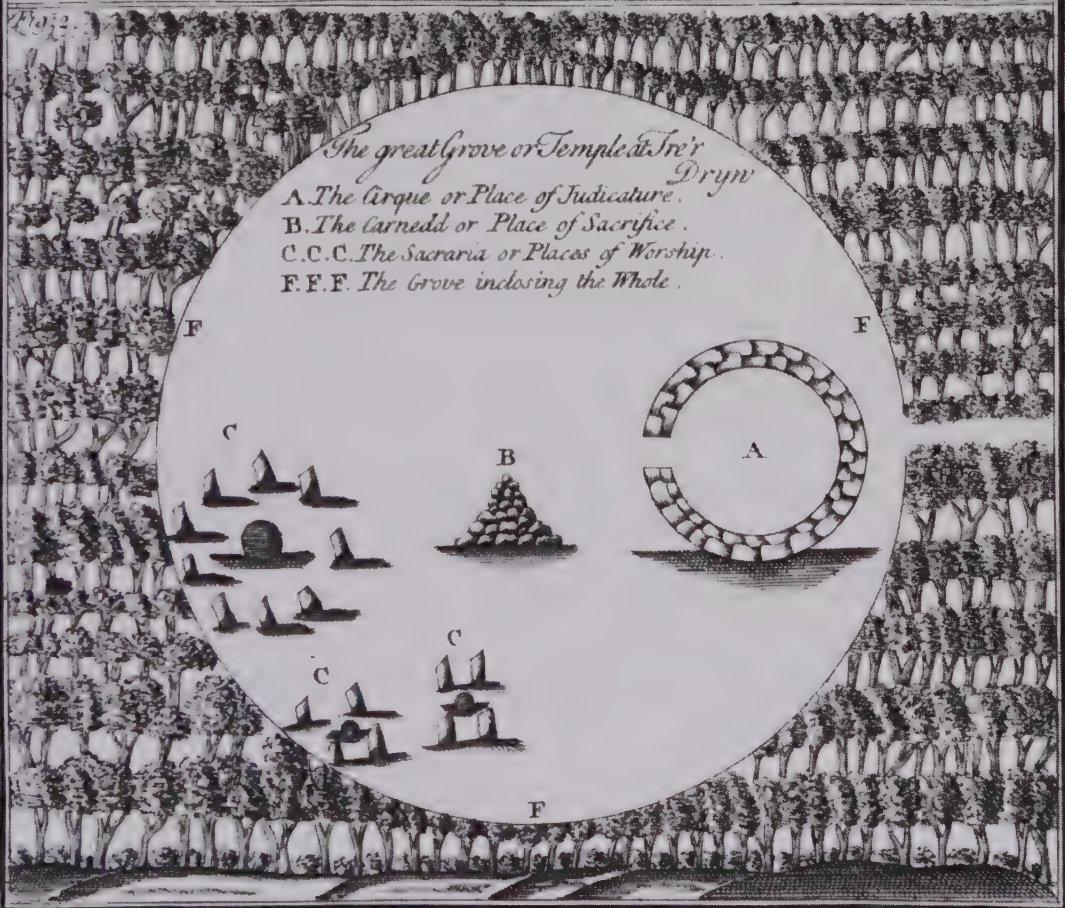 Fig: 2.
The great Grove or Temple at Tre'r
Dryw
A. The Cirque or Place of Judicature.
B. The Carnedd or Place of Sacrifice.
C.C.C. The Sacraria or Places of Worship.
F. F. F. The Grove inclosing the Whole.
F
F
C
B
A
C
C
F